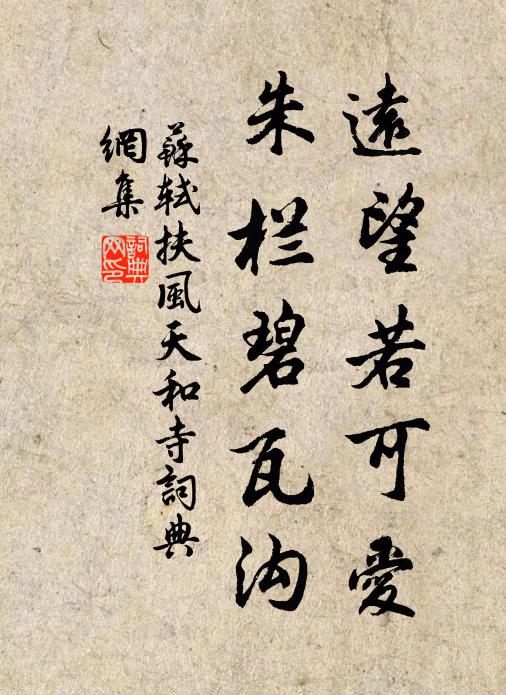 遠望若可愛
朱栏碧瓦沟
蘇軾扶風天和寺詞典
網集
詞典
网印